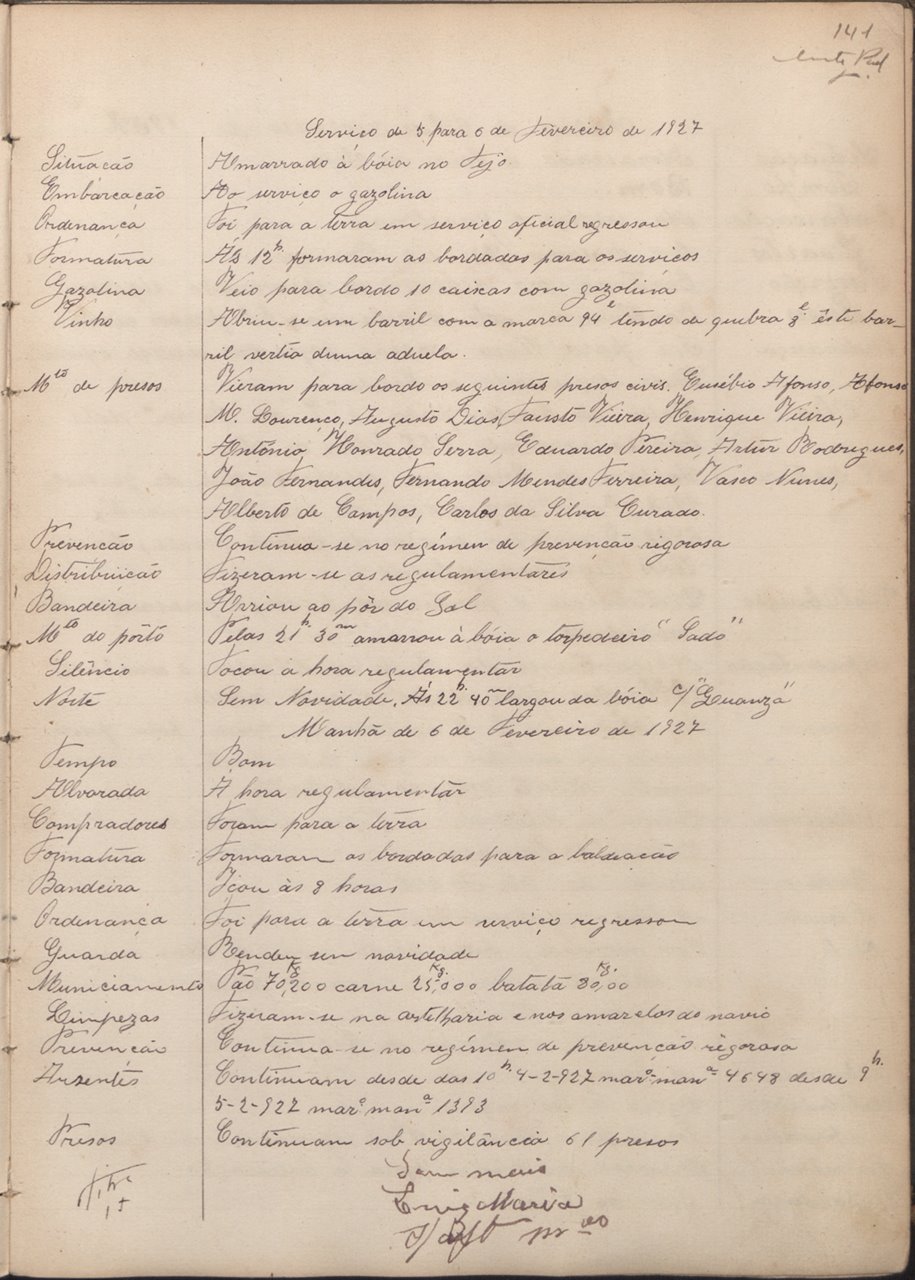 141
Serviço de 5 para 6 de Fevereiro de 1927
Situação Amarrado á bóia no Tejo.
Embarcação Ao serviço o gazolina
Ordenança Foi para a terra em serviço oficial regressou
Formatura Ás 12h. formaram as bordadas para os serviços
Gazolina Veio para bordo 10 caixas com gazolina
Vinho Abriu-se um barril com a marca 94 tendo de quebra 8 êste bar-
ril vertia duma aduela.
Mto de presos Vieram para bordo os seguintes presos civis. Eusébio Afonso, Afonso
M. Lourenço, Augusto Dias, Fausto Vieira, Henrique Vieira,
António, Honrado Serra, Eduardo Pereira, Artur Rodrigues,
João Fernandes, Fernando Mendes Ferreira, Vasco Nunes,
Alberto de Campos, Carlos da Silva Curado.
Prevencão Continua-se no regímen de prevencão rigorosa
Distribuicão Fizeram-se as regulamentares
Bandeira Arriou ao pôr do Sol
Mto do pôrto Pelas 21h. 30m amarrou à bóia o torpedeiro "Sado"
Silêncio Tocou á hora regulamentar
Noite Sem Novidade. Ás 22h. 40m largou da bóia o/ "Quanza"
Manhã de 6 de Fevereiro de 1927
Tempo Bom
Alvorada A hora regulamentar
Compradores Foram para a terra
Formatura Formaram as bordadas para a baldeacão
Bandeira Içou às 8 horas
Ordenança Foi para a terra em serviço regressou
Guarda Rendeu sem novidade
Municiamento Pão 70,200 Kg. carne 25,000 Kg. batata 80,00 Kg.
Limpezas Fizeram-se na artelharia e nos amarelos do navio
Prevenção Continua-se no regímen de prevenção rigorosa
Auzentes Continuam desde das 10h. 4-2-927 mar.º man.ª 4648 desde 9h.
5-2-927 mar.º man.ª 1393
Presos Continuam sob vigilância 61 presos
Sem mais
Luiz Maria